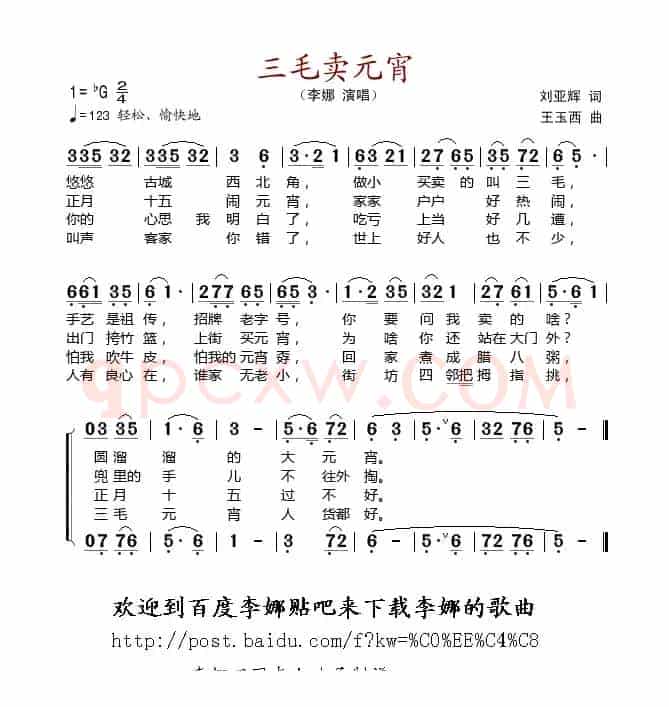 三毛卖元宵
（李娜 演唱）
1=♭G 2/4
♩=123 轻松、愉快地
刘亚辉 词
王玉西 曲
335 32 | 335 32 | 3 6 | 3·2 1 | 63 21 | 27 65 | 35 72 | 6 5· |
悠悠 古城 西北角， 做小 买卖的叫三毛，
正月 十五 闹元宵， 家家 户户 好热闹，
你的 心思我明白了， 吃亏 上当 好几遭，
叫声 客家 你错了， 世上 好人 也不少，
661 35 | 6 1· | 277 65 | 65 3· | 1·2 35 | 32 1 | 27 61 | 5 - |
手艺是祖传，招牌老字号， 你要问我卖的啥？
出门挎竹篮，上街买元宵， 为啥你还站在大门外？
怕我吹牛皮，怕我的元宵孬， 回家煮成腊八粥，
人有良心在，谁家无老小， 街坊四邻把拇指挑，
03 35 | 1·6 | 3 - | 5·6 72 | 6 3 | 5·ˇ6 | 32 76 | 5 - ‖
圆溜溜的大元宵。
兜里的手儿不往外掏。
正月十五过不好。
三毛元宵人货都好。
07 76 | 5·6 | 1 - | 3 72 | 6 3 | 5·ˇ6 | 32 76 | 5 - ‖
qpcxw.com
欢迎到百度李娜贴吧来下载李娜的歌曲
http://post.baidu.com/f?kw=%C0%EE%C4%C8